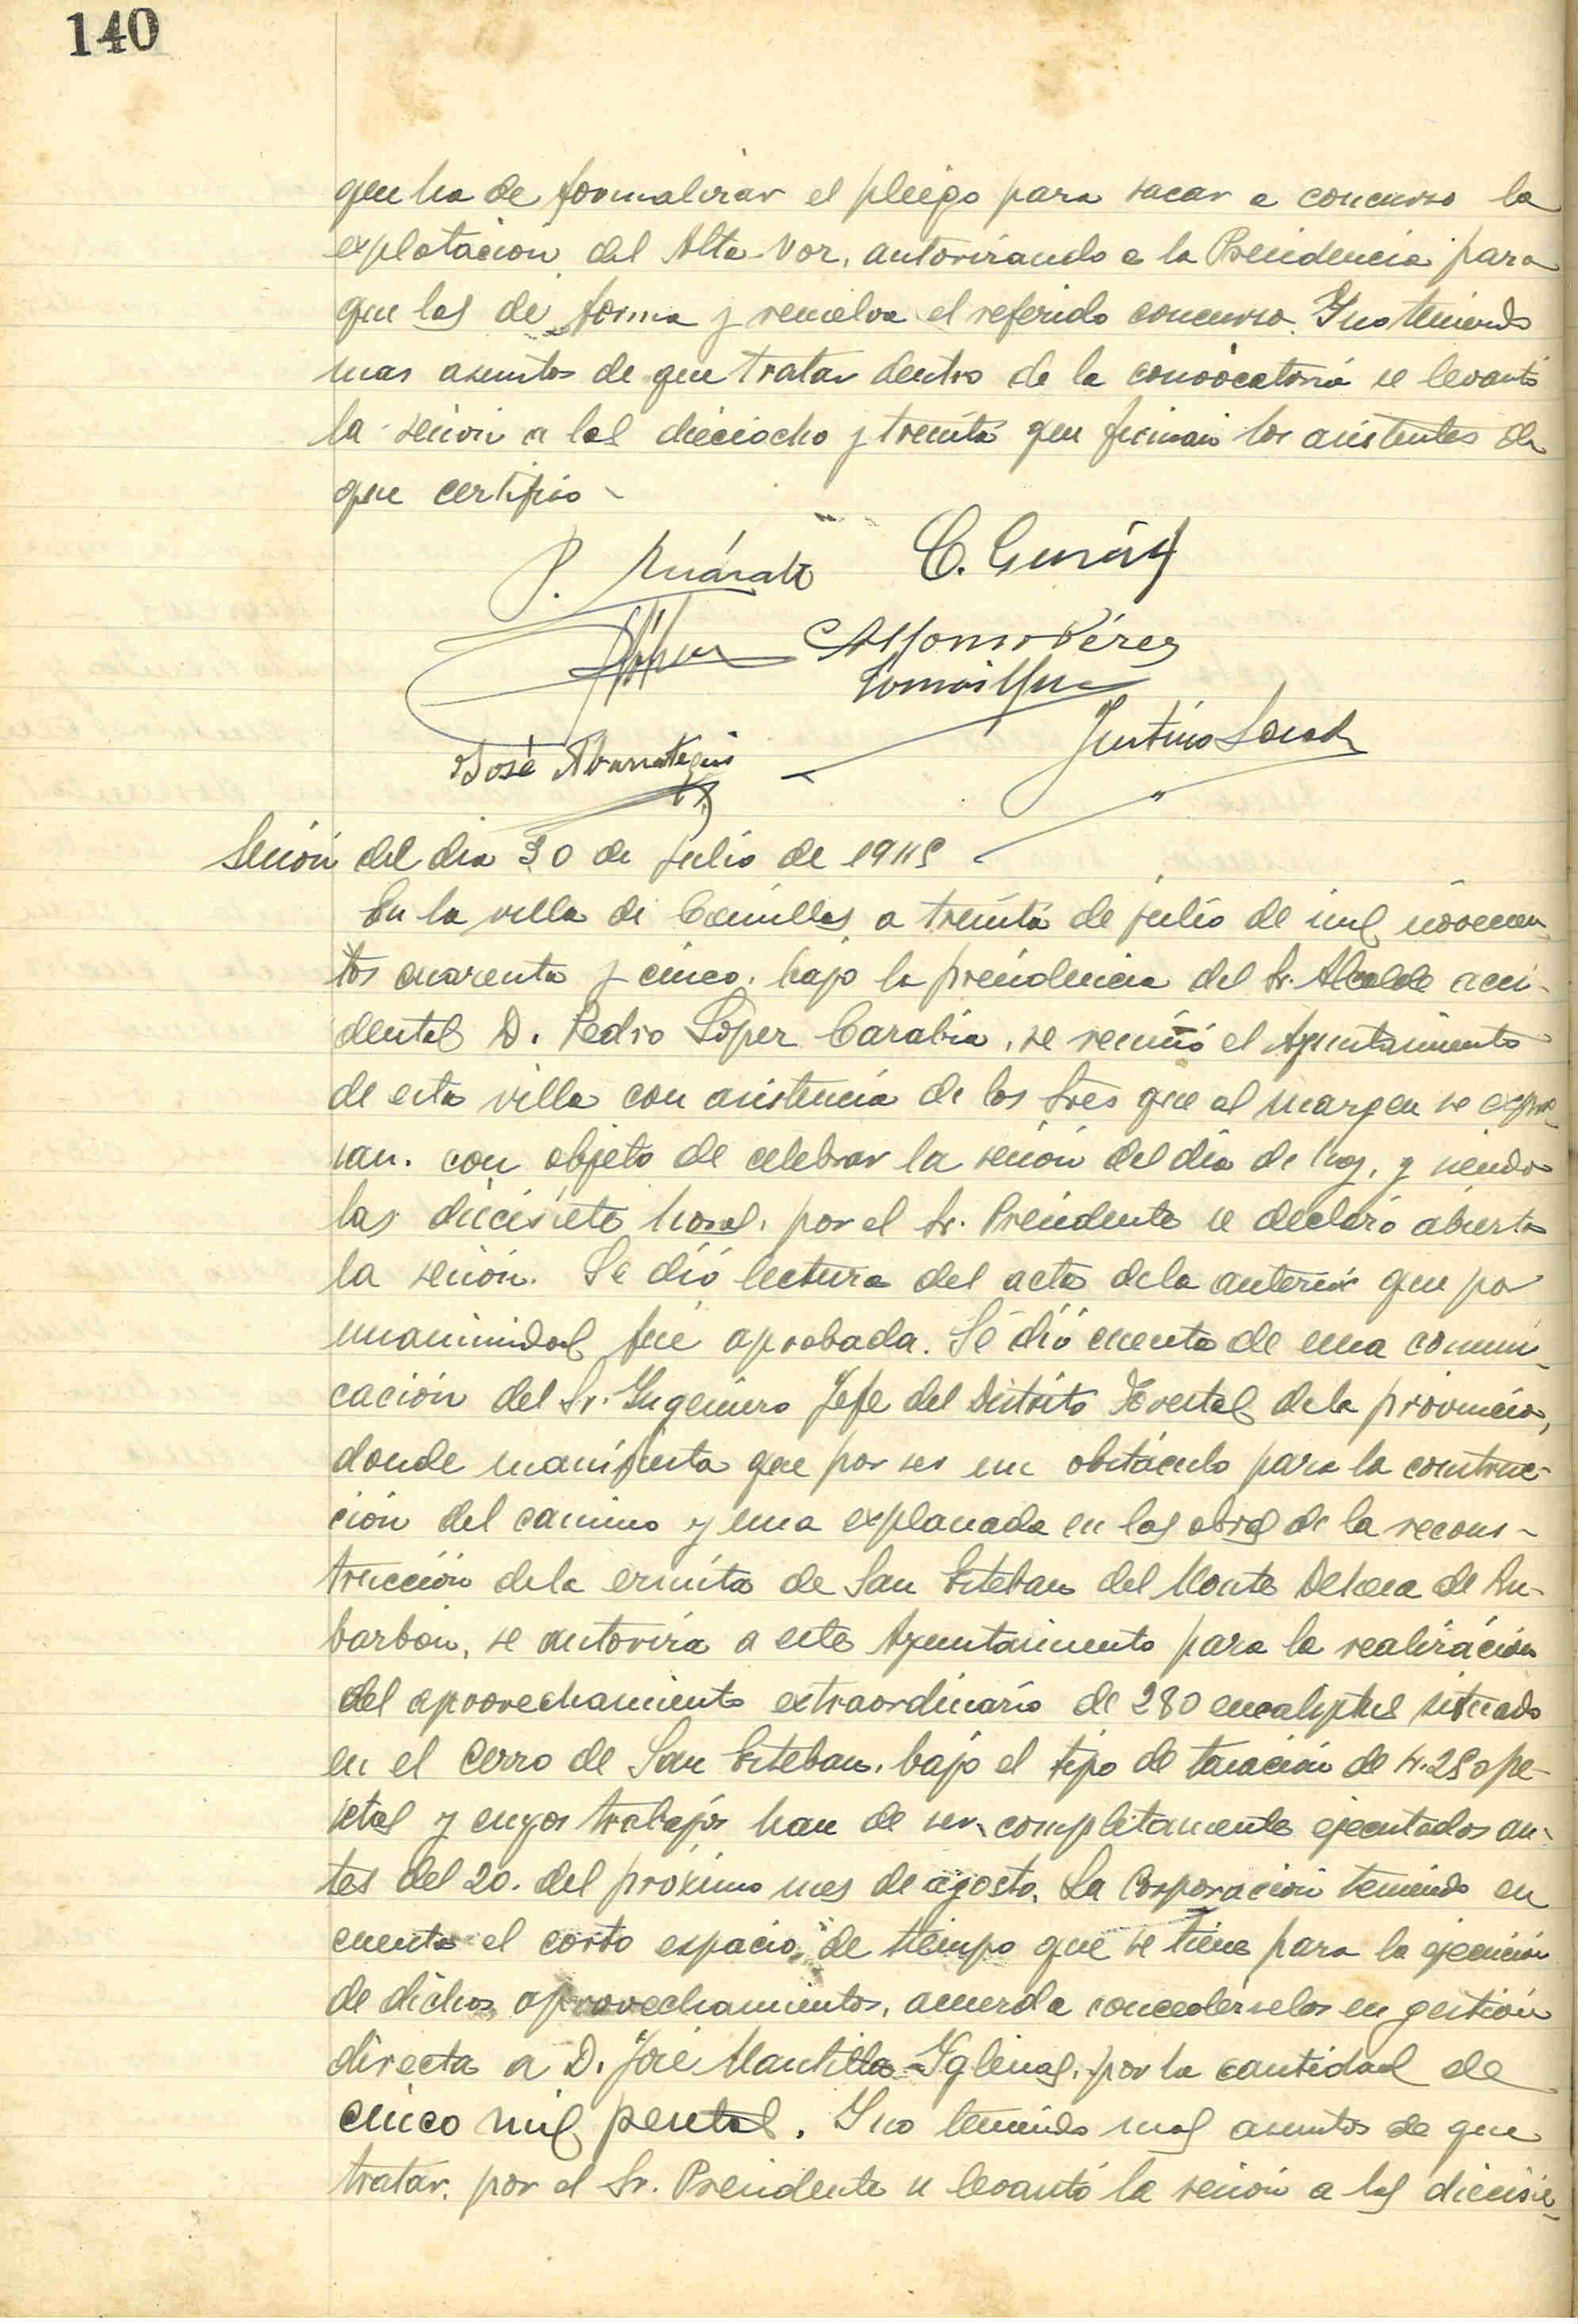 140
que ha de formalizar el pliego para sacar a concurso la
explotación del Alta-Voz, autorizando a la Presidencia para
que las de forma y resuelva el referido concurso. Y no teniendo
mas asuntos de que tratar dentro de la convocatoria se levantó
la sesión a las dieciocho y treinta que firman los asistentes de
que certifico -
P.
C.
Alfonso Pérez
Tomás
José Abarrategui
Justino
Sesión del dia 30 de julio de 1945
En la villa de Comillas a treinta de julio de mil novecien-
tos cuarenta y cinco, bajo la presidencia del Sr. Alcalde acci-
dental D. Pedro López Carabia, se reunió el Ayuntamiento
de esta villa con asistencia de los Sres que al margen se expre-
san, con objeto de celebrar la sesión del día de hoy, y siendo
las diecisiete horas, por el Sr. Presidente se declaró abierta
la sesión. Se dió lectura del acta de la anterior que por
unanimidad fué aprobada. Se dió cuenta de una comuni-
cación del Sr. Ingeniero Jefe del Distrito Forestal de la provincia,
donde manifiesta que por ser un obstáculo para la construc-
ción del camino y una explanada en las obras de la recons-
trucción de la ermita de San Esteban del Monte Dehesa de Ru-
barbón, se autoriza a este Ayuntamiento para la realización
del aprovechamiento extraordinario de 280 eucaliptus situado
en el Cerro de San Esteban, bajo el tipo de tasación de 4.250 pe-
setas y cuyos trabajos han de ser completamente ejecutados an-
tes del 20. del próximo mes de agosto. La Corporación teniendo en
cuenta el corto espacio de tiempo que se tiene para la ejecución
de dichos aprovechamientos, acuerda concederselos en gestión
directa a D. José Mantilla Iglesias, por la cantidad de
cinco mil pesetas. Y no teniendo mas asuntos de que
tratar, por el Sr. Presidente se levantó la sesión a las diecisie-